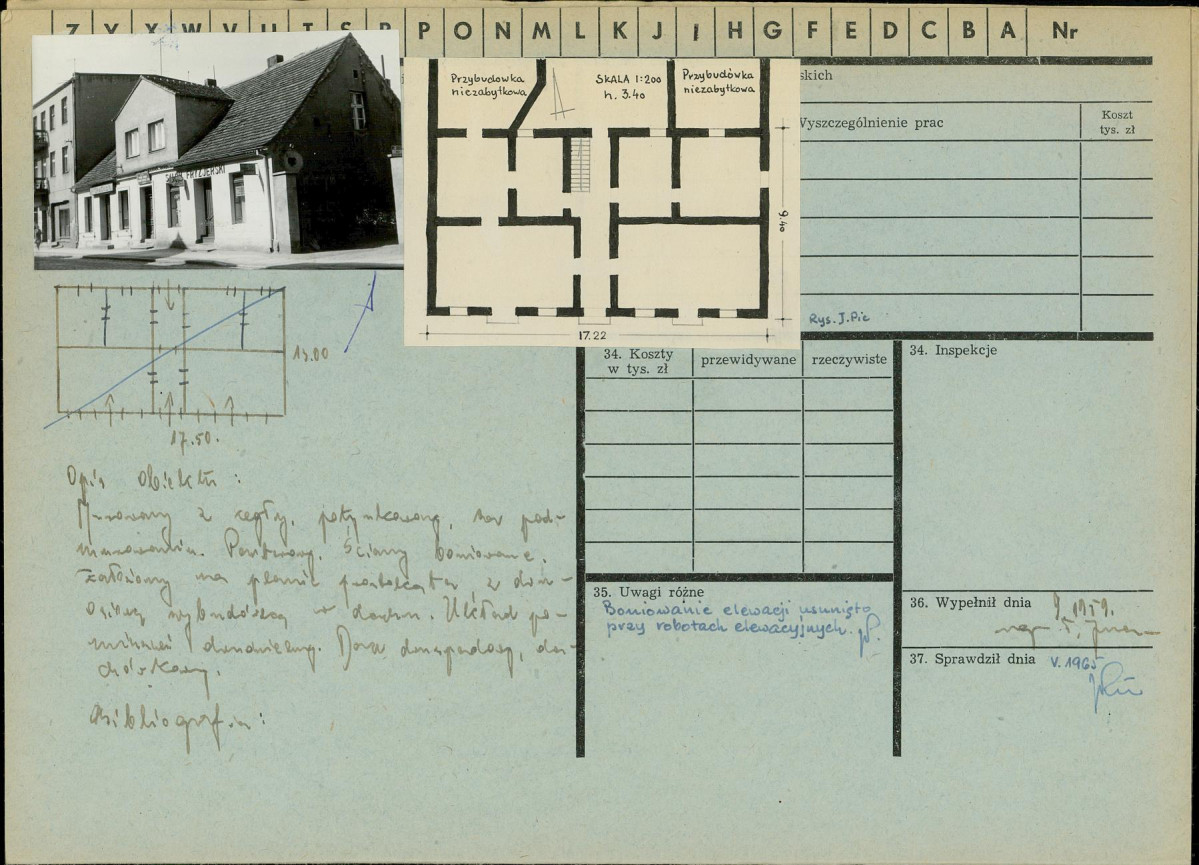 Z Y X W V U T S R P O N M L K J I H G F E D C B A Nr
SALON FRYZJERSKI
Przybudowka
niezabytkowa
SKALA 1:200
h. 3.40
Przybudówka
niezabytkowa
9.40
17.22
skich
Wyszczególnienie prac
Koszt
tys. zł
Rys. J. Pic
13.00
17.50.
Opis obiektu:
Murowany z cegły, potynkowany, bez pod-
murowania. Parterowy. Ściany boniowane.
Założony na planie prostokąta z
w dachu. Układ po-
mieszczeń Dach dwuspadowy, da-
chówkowy.
Bibliografia:
34. Koszty
w tys. zł
przewidywane
rzeczywiste
34. Inspekcje
35. Uwagi różne
Boniowanie elewacji usunięto
przy robotach elewacyjnych.
36. Wypełnił dnia 9.1959.
mgr
37. Sprawdził dnia V. 1965